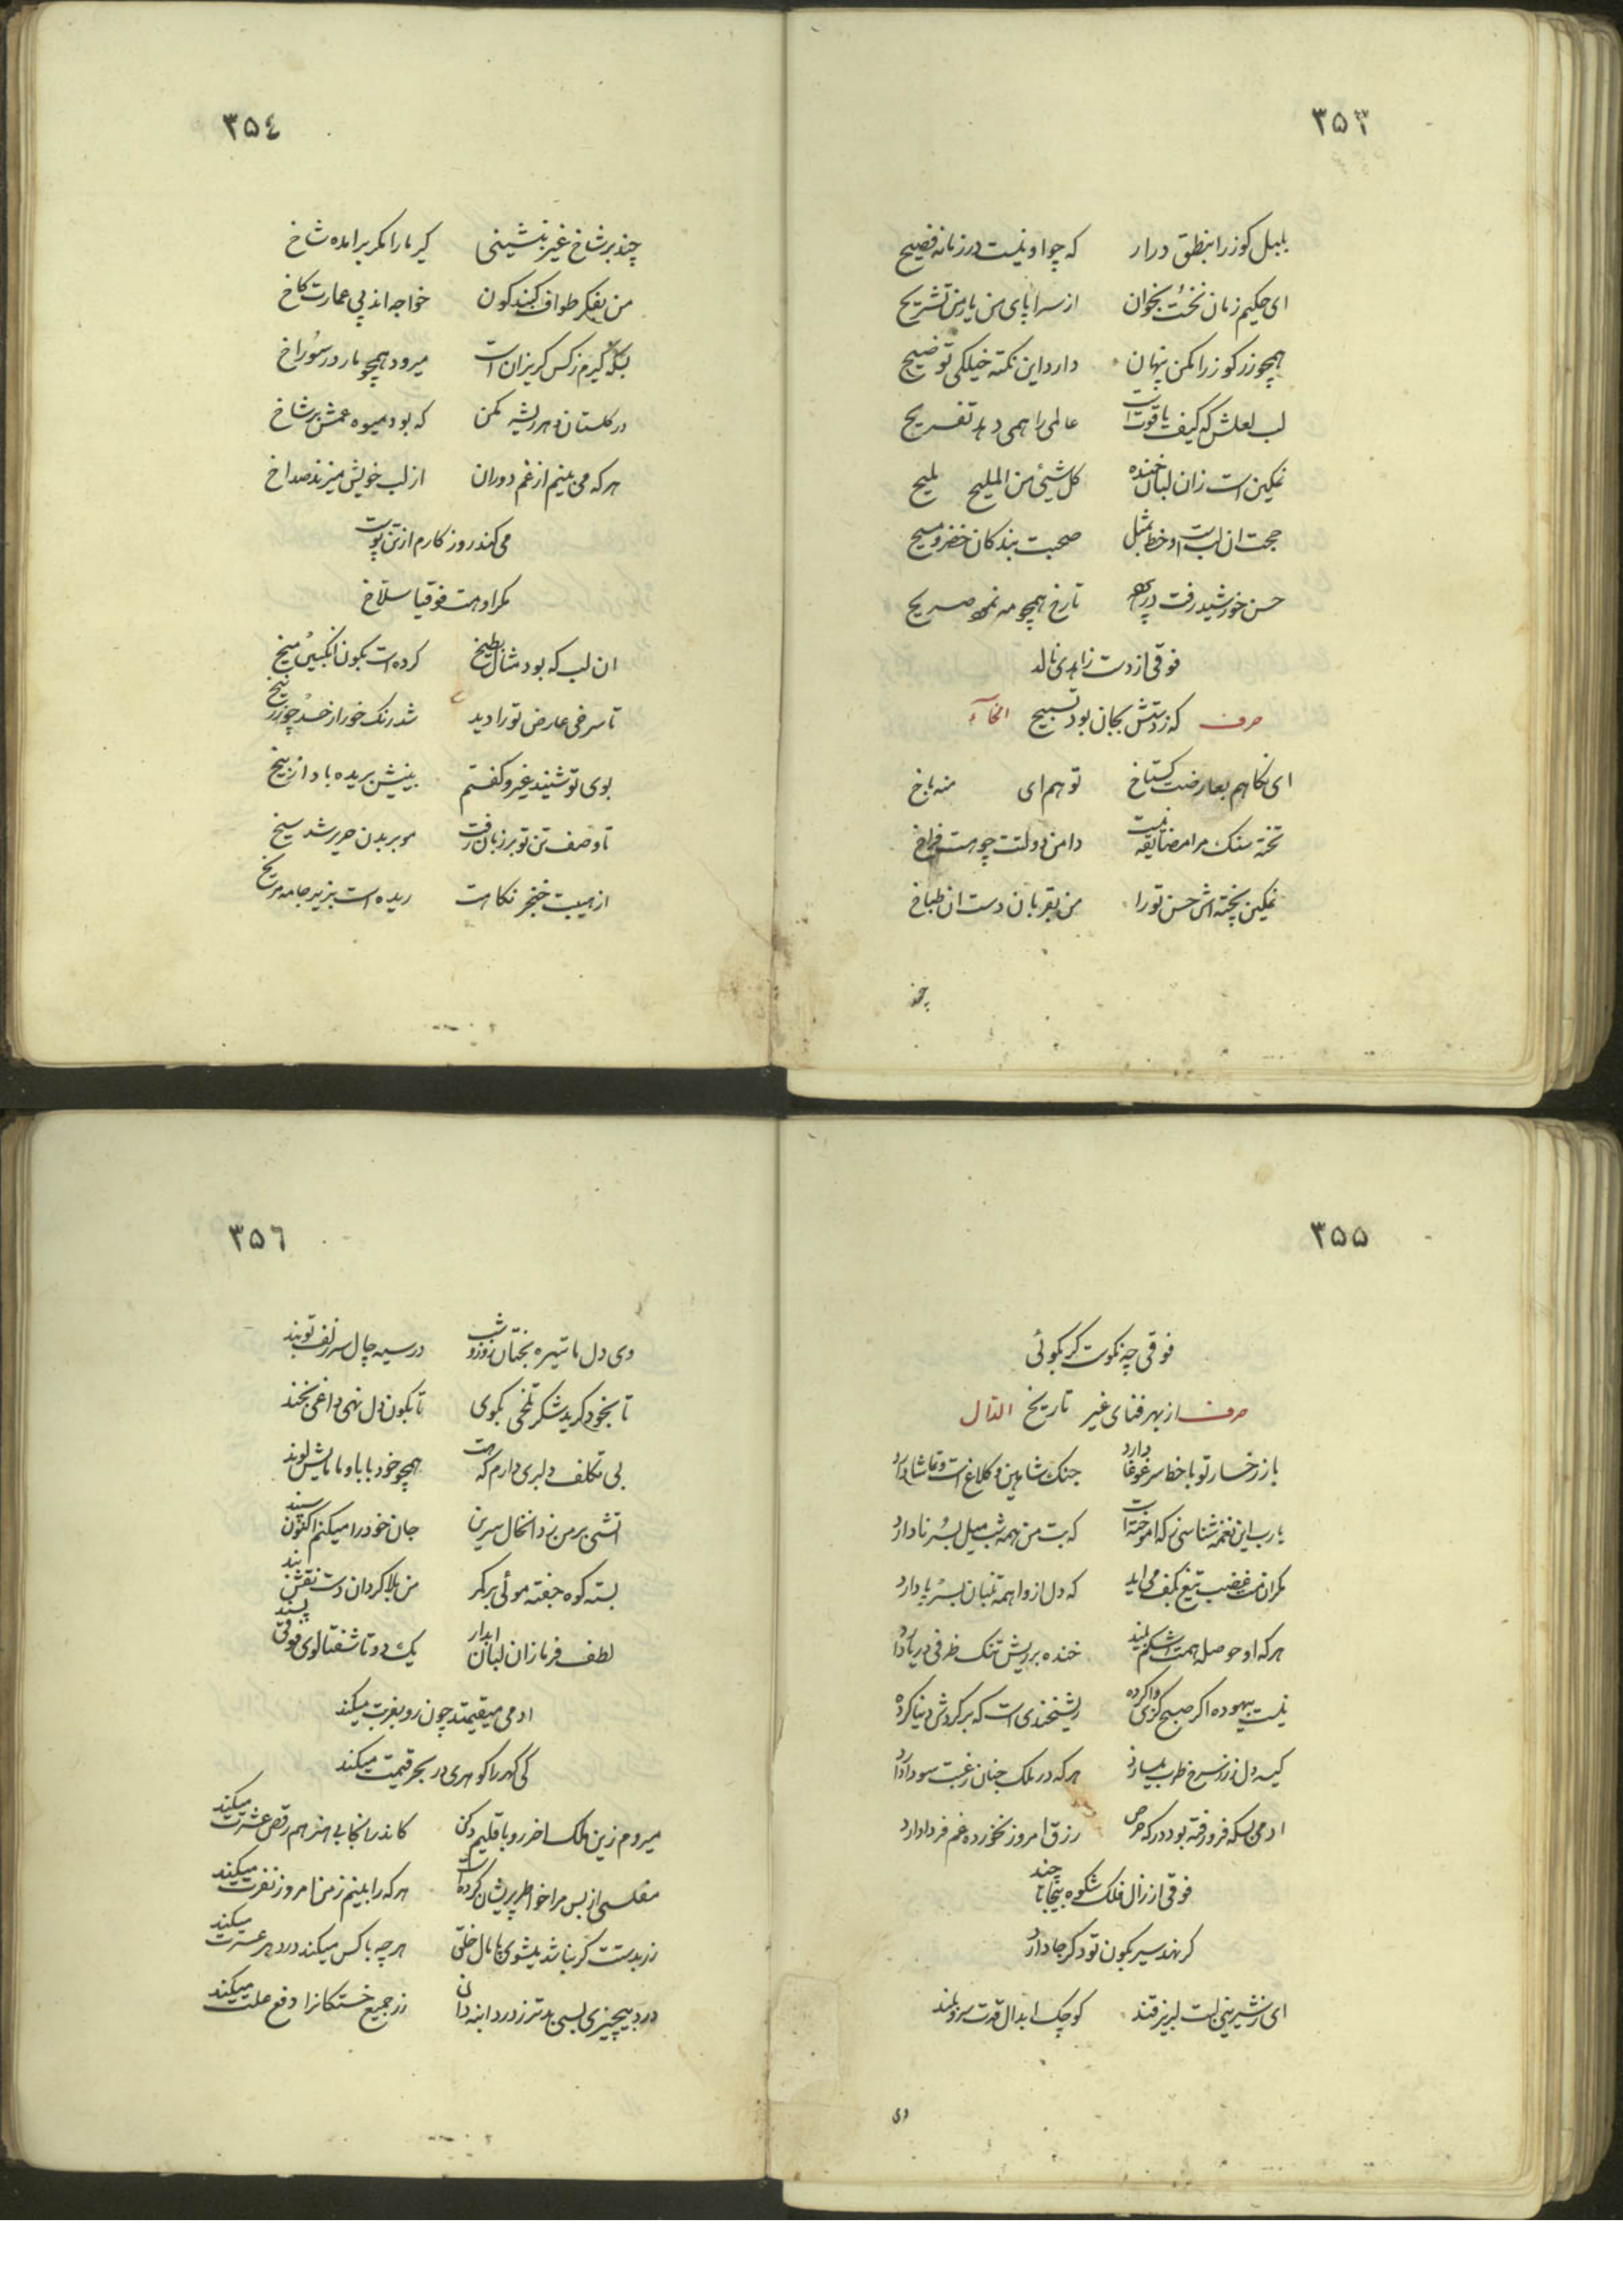 ۳۵۳
بلبل کوز را بنطق درار که چو او نیست در زمانه فصیح
ای حکیم زمان نخست بخوان از سراپای من یار من تشریح
همچو زر کوز را مکن پنهان دارد این نکته خیلکی توضیح
لب لعلش که کیف یاقوت است عالمی را همی دهد تفریح
نمکین است زان لبان خنده کل شیئ من الملیح ملیح
حجت ان لب است و خط بمثل صحبت بندکان خضر و مسیح
حسن خورشید رفت در پرده تا رخ همچو مه نمود صریح
فوقی از دست زاهدی نالد
حرف که ز دستش بجان بود تسبیح الخآء
ای نکاهم بعارضت کستاخ تو هم ای منه باخ
تخته سنک مرا مضایقه نیست دامن دولتت چو هست فراخ
نمکین پخته اش حسن تو را من بقربان دست ان طباخ
چند
۳۵۴
چند بر شاخ غیر بنشینی کیر ما را مکر برامده شاخ
من بفکر طواف کنبد کون خواجه اند پی عمارت کاخ
بسکه کیرم ز کس کریزان است میرود همچو مار در سوراخ
در کلستان دهر ریشه مکن که بود میوه عمش بر شاخ
هر که می بینم از غم دوران از لب خویش میزند صد اخ
می کند روزکارم از تن پوست
مکر او هست فوقیا سلاخ
ان لب که بود مثال بطیخ کرده است بکون انکبین میخ
تا سرخی عارض تو را دید شد رنک خور از حسد چو زرنیخ
بوی تو شنید غیر و کفتم بینیش بریده باد از بیخ
تا وصف تن تو بر زبان رفت مو بر بدن حریر شد سیخ
از هیبت خنجر نکاهت ریده است بزیر جامه مریخ
۳۵۵
فوقی چه نکوست کر بکوئی
حرف از بهر فنای غیر تاریخ الدال
باز رخسار تو با خط سر غوغا دارد جنک شاهین و کلاغ است و تماشا دارد
یارب این نغمه شناسی ز که اموخته است که بت من همه شب میل بسرنا دارد
مکر ان مست غضب تیغ بکف می اید که دل از واهمه تنبان بسر پا دارد
هر که او حوصله همت اشکم بیند خنده بر ریش تنک ظرفی دریا دارد
نیست بیهوده اکر صبح کزی وا کرده ریشخندی است که بر کردش دنیا کرده
کیسه دل ز زر سرخ طرب میسازد هر که در ملک جنان رغبت سودا دارد
ادمی بسکه فرو رفته بود در که حرص رزق امروز نخورده غم فردا دارد
فوقی از زال فلک شکوه بیجا تا چند
کر نهد سیر بکون تو دکر جا دارد
ای ز شیرینی لبت لبریز قند کوچک ابدال قدت سرو بلند
وی
۳۵۶
وی دل ما تیره بختان روز و شب در سیه چال سر زلف تو بند
تا بخود کرید شکر تلخی بکوی تا بکون دل نهی داغی بخند
بی تکلف دلبری دارم که هست همچو خود بابا و ماماش لوند
اتشی بر من زد ان خال سرین جان خود را میکنم اکنون سپند
بسته کوه جفته موئی بر کمر من بلا کردان دست نقش بند
لطف فرما زان لبان ابدار یک دو تا شفتالوی فوقی پسند
ادمی میقیمتد چون رو بغربت میکند
کی کهر را کوهری در بحر قیمت میکند
میروم زین ملک اخر رو باقلیم دکن کاندر انجا بی هنر هم رقص عشرت میکند
مفلسی از بس مرا خواطر پریشان کرده است هر که را بینم ز من امروز نفرت میکند
زر بدستت کر نباشد میشوی پامال خلق هر چه با کس میکند در دهر عسرت میکند
درد بیچیزی بسی بدتر ز درد ابنه دان زر جمیع خستکانرا دفع علت میکند